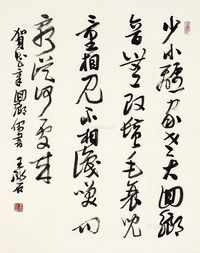 少小離家老大回鄉
音無改鬢毛衰兒
童相見不相識笑问
客從何處来
賀知章回鄉偶書 王